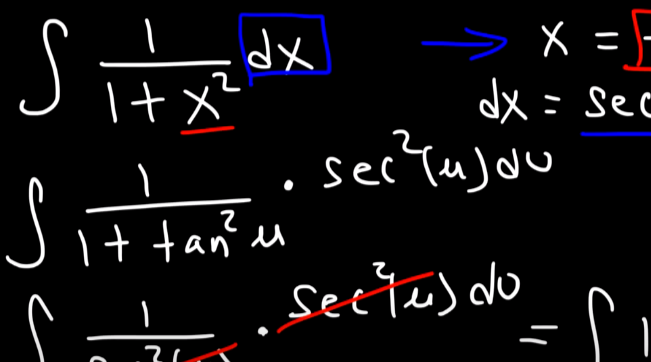 ∫ 1/(1 + x²) dx → x =
dx = sec
∫ 1/(1 + tan² u) · sec²(u) du
∫ 1/ · sec²(u) du = ∫ 1